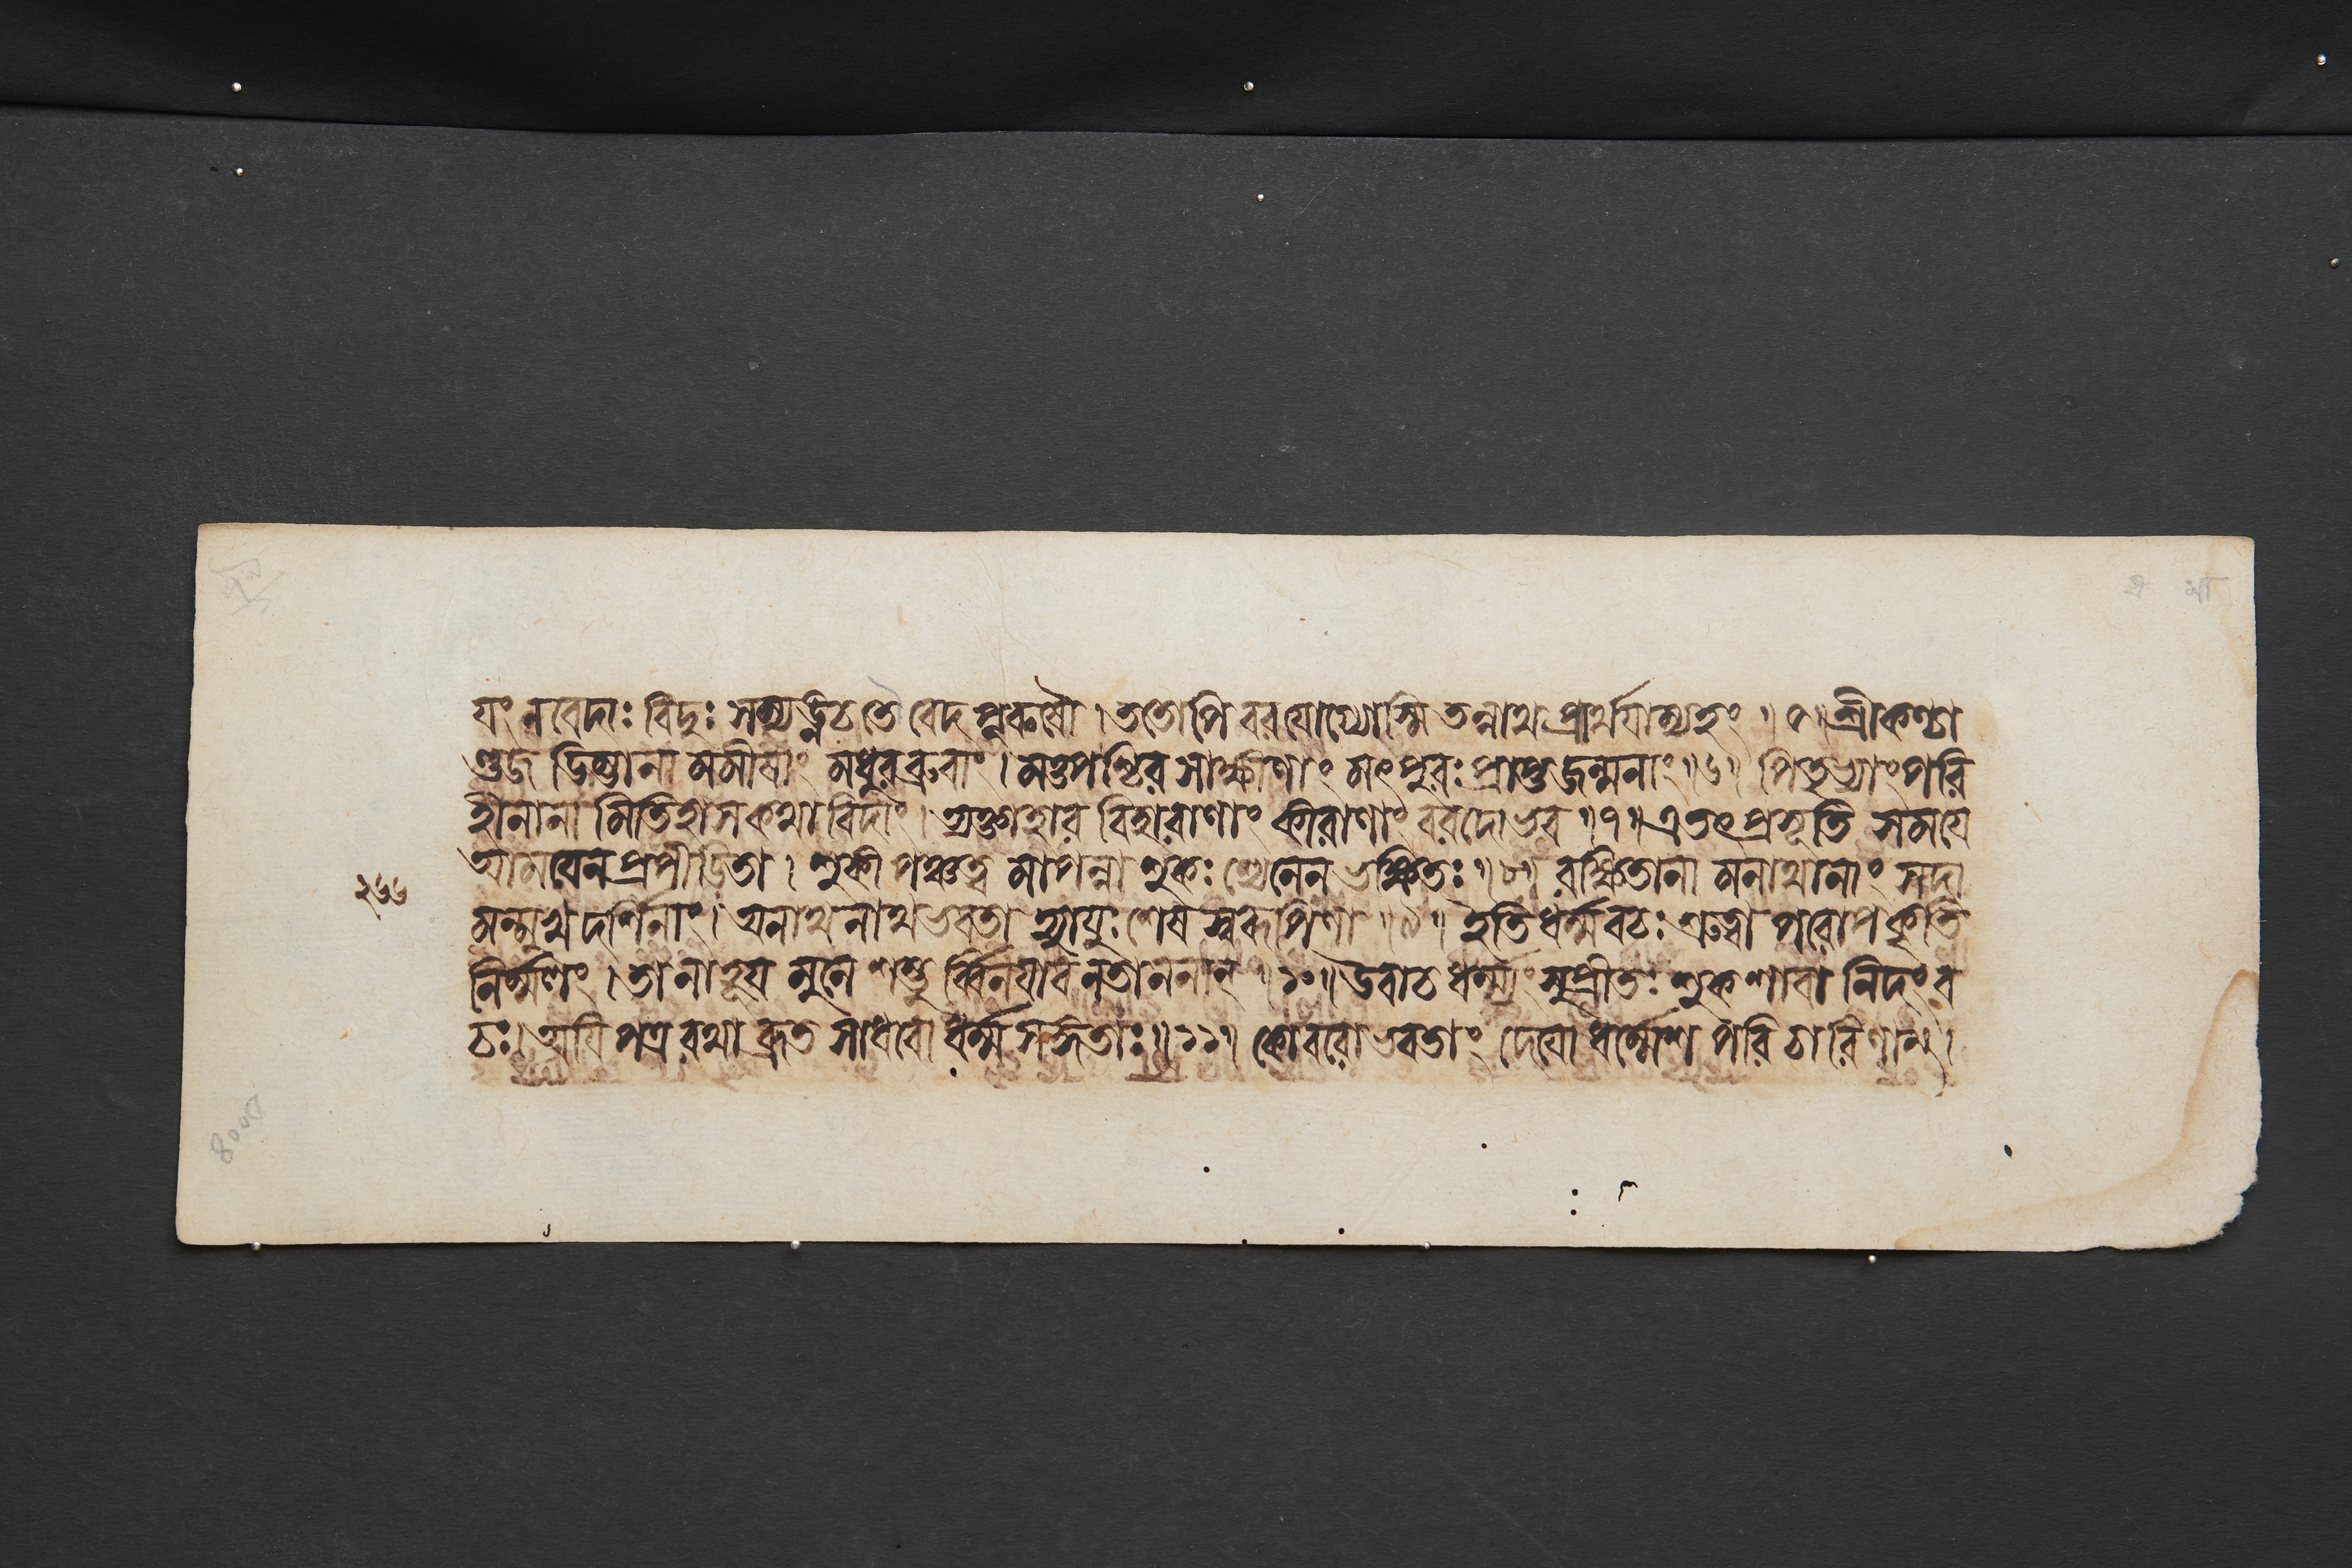 যং ন বেদাঃ বিদুঃ সম্যঙ্ন চ তৌ বেদপূরুষৌ । ততোপি বরযোগ্যোস্মি তন্নাথ প্রার্থযাম্যহং ॥ ৫ ॥ শ্রীকণ্ঠা
ণ্ডজ ডিম্ভানা মমীষাং মধুরব্রুবাং । মত্তপশ্চির সাক্ষীণাং মৎপুরঃ প্রাপ্তজন্মনাং ॥ ৬ ॥ পিতৃভ্যাং পরি
হীনানা মিতিহাসকথাবিদাং । ত্যক্তাহার বিহারাণাং কীরাণাং বরদো ভব ॥ ৭ ॥ এতৎ প্রসূতি সমযে
আমযেন প্রপীডিতা । শুকী পঞ্চত্ব মাপন্না শুকঃ শ্যেনেন ভক্ষিতঃ ॥ ৮ ॥ রক্ষিতানা মনাথানাং সদা
২৬৬
মন্মুখ দর্শিনাং । অনাথনাথ ভবতা হ্যাযুঃ শেষ স্বরূপিণা ॥ ৯ ॥ ইতি ধর্ম্মবচঃ শ্রুত্বা পরোপকৃতি
নির্ম্মলং । তানাহূয মুনে শম্ভু র্ব্বিনযাবনতাননান্ ॥ ১০ ॥ উবাচ ধর্ম্মং সুপ্রীতঃ শুকশাবা নিদং ব
চঃ । অযি পত্ররথা ব্রূত সাধবো ধর্ম্মসঙ্গতাঃ ॥ ১১ ॥ কো বরো ভবতাং দেযো ধর্ম্মেশ পরিচারিণাম্ ।